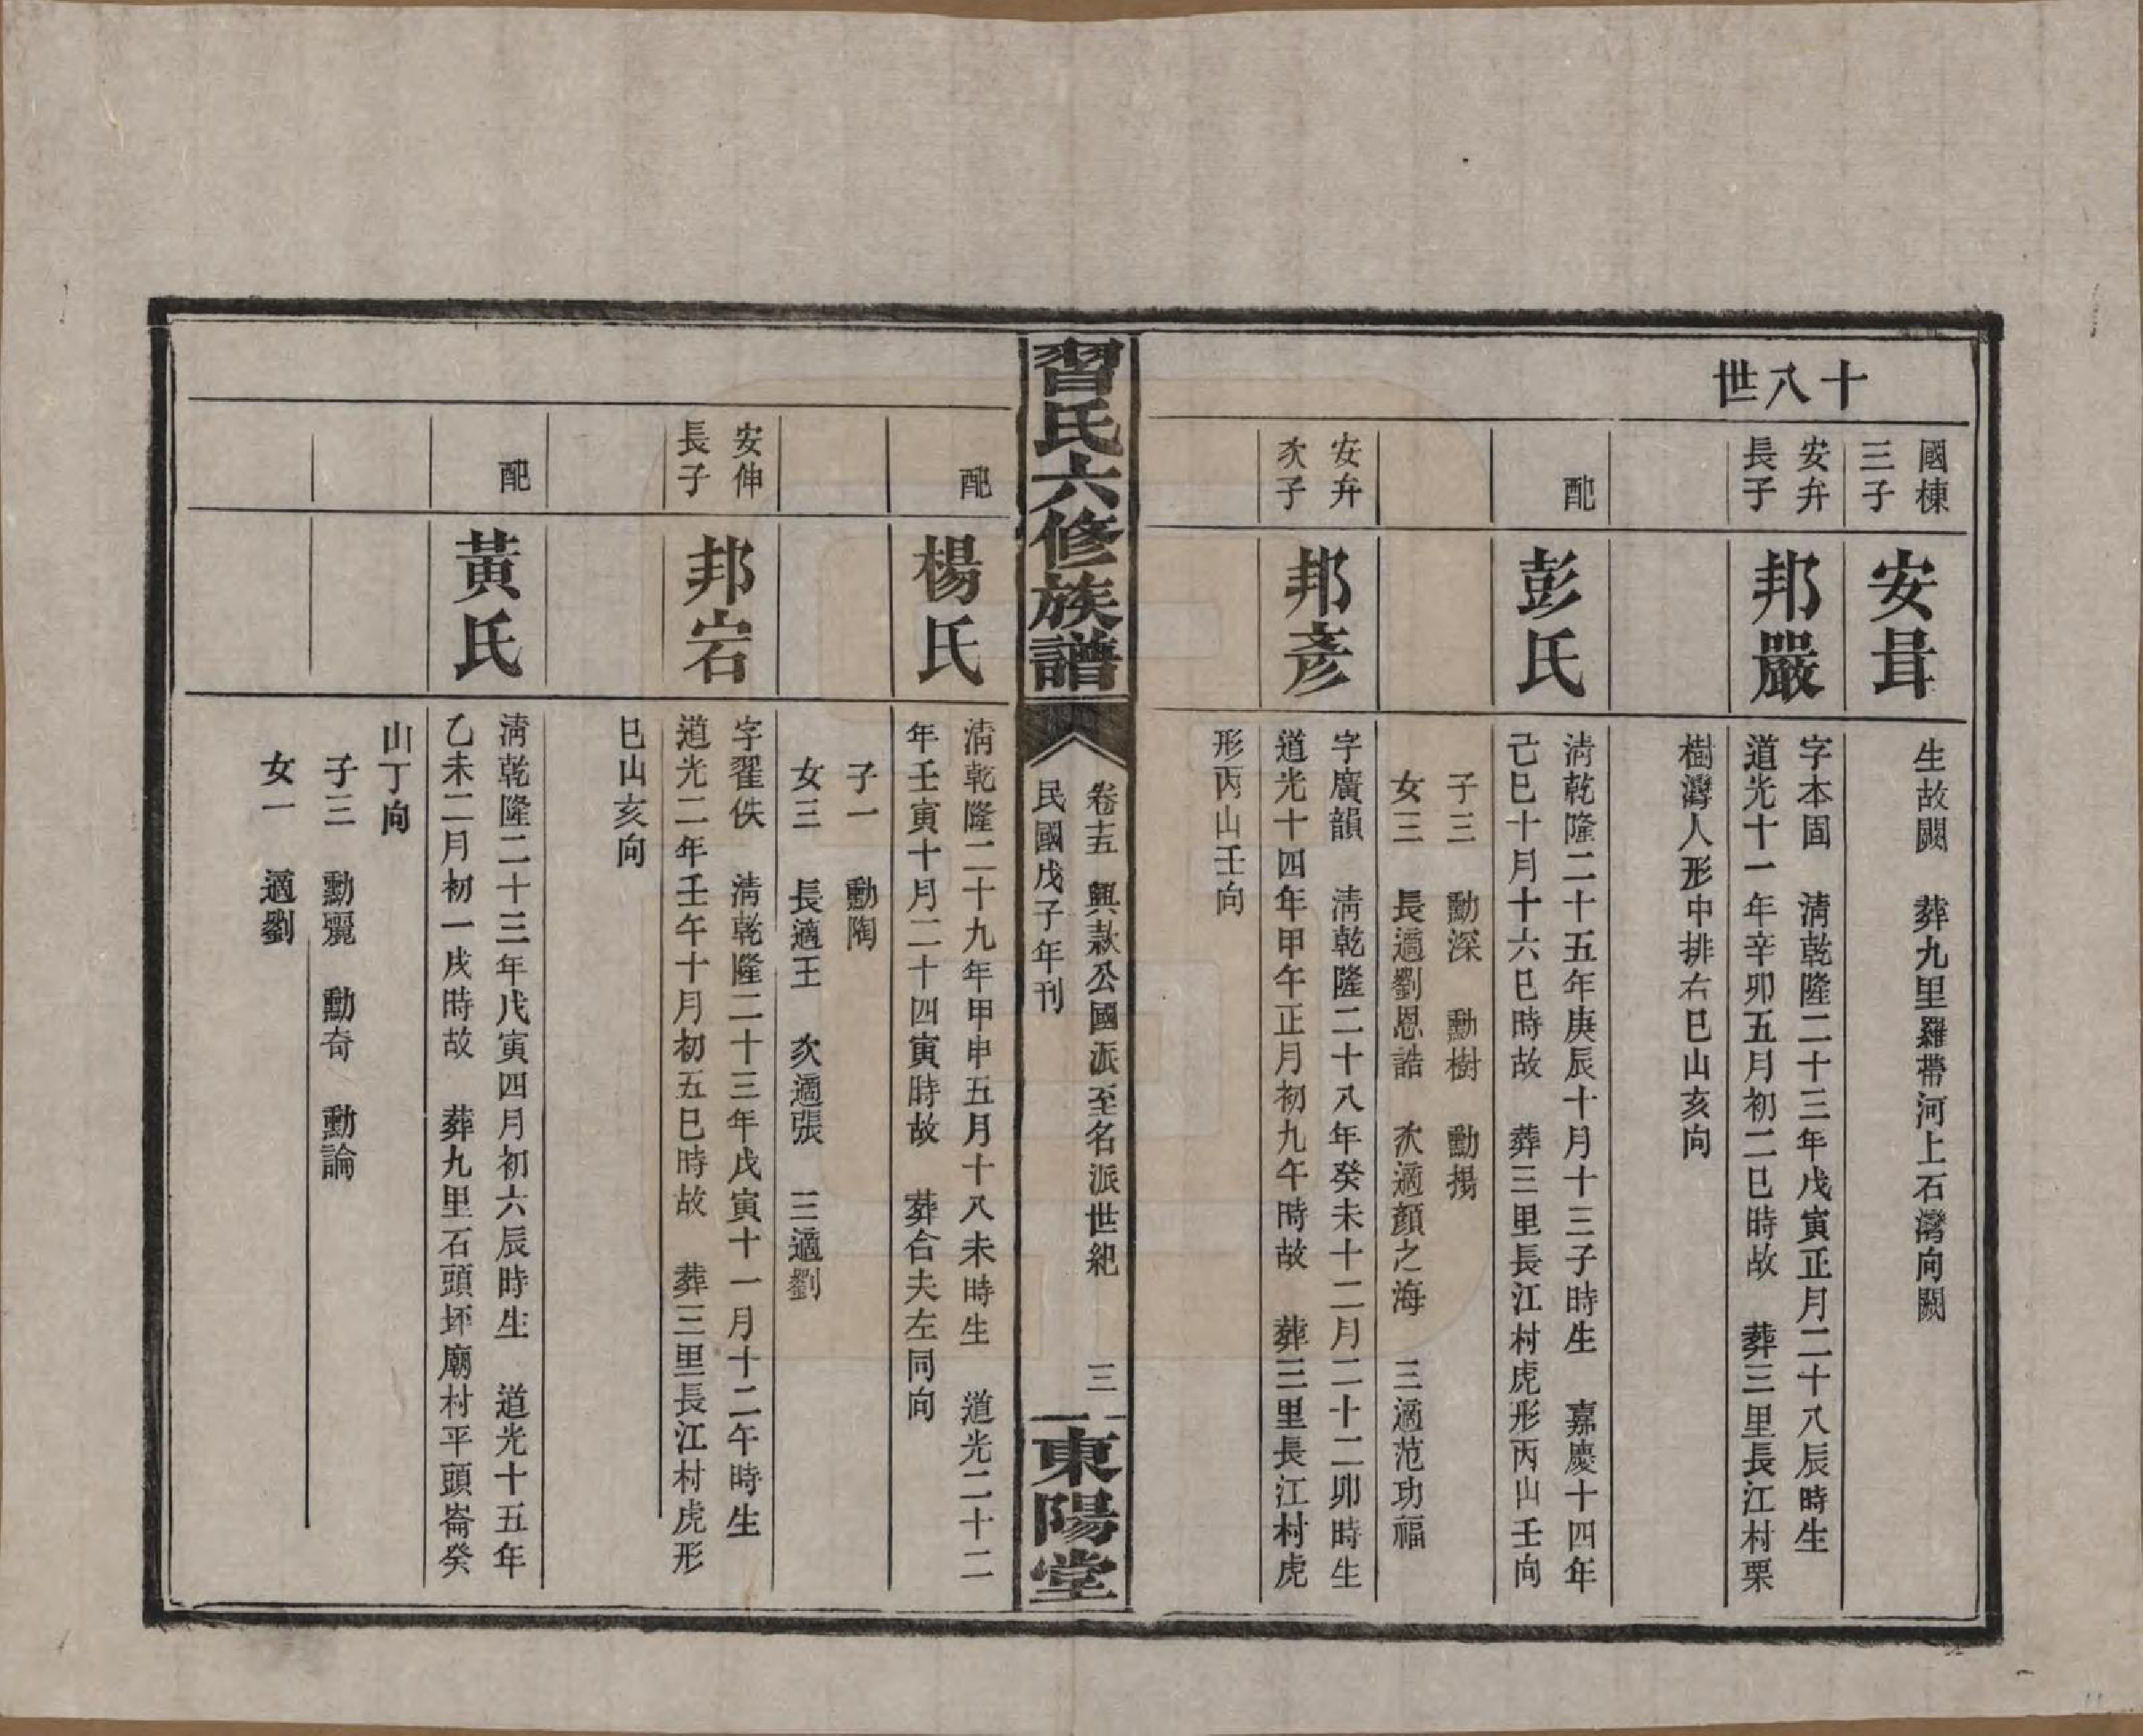 十八世
國棟
三子
安㫷
生故闕　葬九里羅帶河上石灣向闕
安弁
長子
邦嚴
字本固　淸乾隆二十三年戊寅正月二十八辰時生
道光十一年辛卯五月初二巳時故　葬三里長江村栗
樹灣人形中排右巳山亥向
配
彭氏
淸乾隆二十五年庚辰十月十三子時生　嘉慶十四年
己巳十月十六巳時故　葬三里長江村虎形丙山壬向
子三　勳深　勳樹　勳揚
女三　長適劉恩誥　次適顏之海　三適范功福
安弁
次子
邦彥
字廣韻　淸乾隆二十八年癸未十二月二十二卯時生
道光十四年甲午正月初九午時故　葬三里長江村虎
形丙山壬向
習氏六修族譜
卷十五　興款公國派至名派世紀　三
民國戊子年刊
東陽堂
配
楊氏
淸乾隆二十九年甲申五月十八未時生　道光二十二
年壬寅十月二十四寅時故　葬合夫左同向
子一　勳陶
女三　長適王　次適張　三適劉
安伸
長子
邦宕
字翟佚　淸乾隆二十三年戊寅十一月十二午時生
道光二年壬午十月初五巳時故　葬三里長江村虎形
巳山亥向
配
黃氏
淸乾隆二十三年戊寅四月初六辰時生　道光十五年
乙未二月初一戌時故　葬九里石頭坏廟村平頭崙癸
山丁向
子三　勳驪　勳奇　勳論
女一　適劉